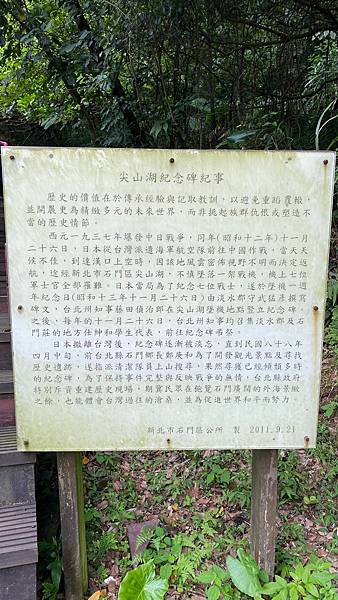 尖山湖紀念碑紀事
歷史的價值在於傳承經驗與記取教訓，以避免重蹈覆轍，
並開展更為精緻多元的未來世界，而非挑起族群仇恨或塑造不
當的歷史情節。
西元一九三七年爆發中日戰爭，同年(昭和十二年)十一月
二十六日，日本從台灣派遣海軍航空隊前往中國作戰，當天天
候不佳，到達漢口上空時，因該地風雲密佈視野不明而決定返
航，途經新北市石門區尖山湖，不慎墜落一架戰機，機上七位
軍士官全部罹難。日本當局為了紀念七位戰士，遂於墜機一週
年紀念日(昭和十三年十一月二十六日)由淡水郡守武猛彥撰寫
碑文，台北州知事藤田傊治郎在尖山湖墜機地點豎立紀念碑。
之後，每年的十一月二十六日，台北州知事均召集淡水郡及石
門莊的地方仕紳和學生代表，前往紀念碑弔祭。
日本撤離台灣後，紀念碑逐漸被淡忘，直到民國八十八年
四月中旬，前台北縣石門鄉長鄭庚和為了開發觀光景點及尋找
歷史遺跡，遂指派清潔隊員上山搜尋，果然尋獲已經傾頹多時
的紀念碑，為了保持事件完整與反映戰爭的無情，台北縣政府
特別斥資重建歷史現場，期冀民眾在飽覽石門廣闊的外海景緻
之餘，也能體會台灣過往的滄桑，並為促進世界和平而努力。
新北市石門區公所 製 2011.9.21